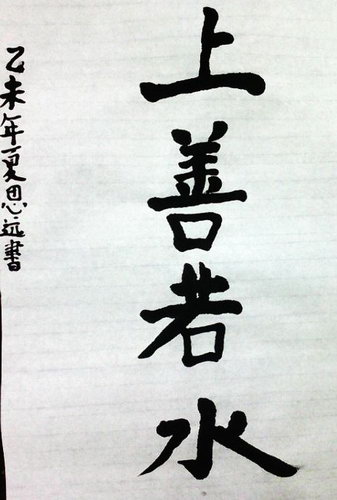 上善若水
乙未年夏思远書